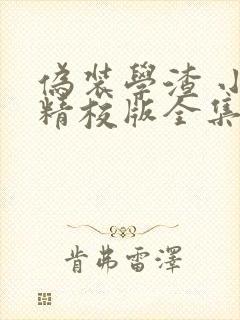 偽裝學渣 小
精校版全集
肯弗雷澤